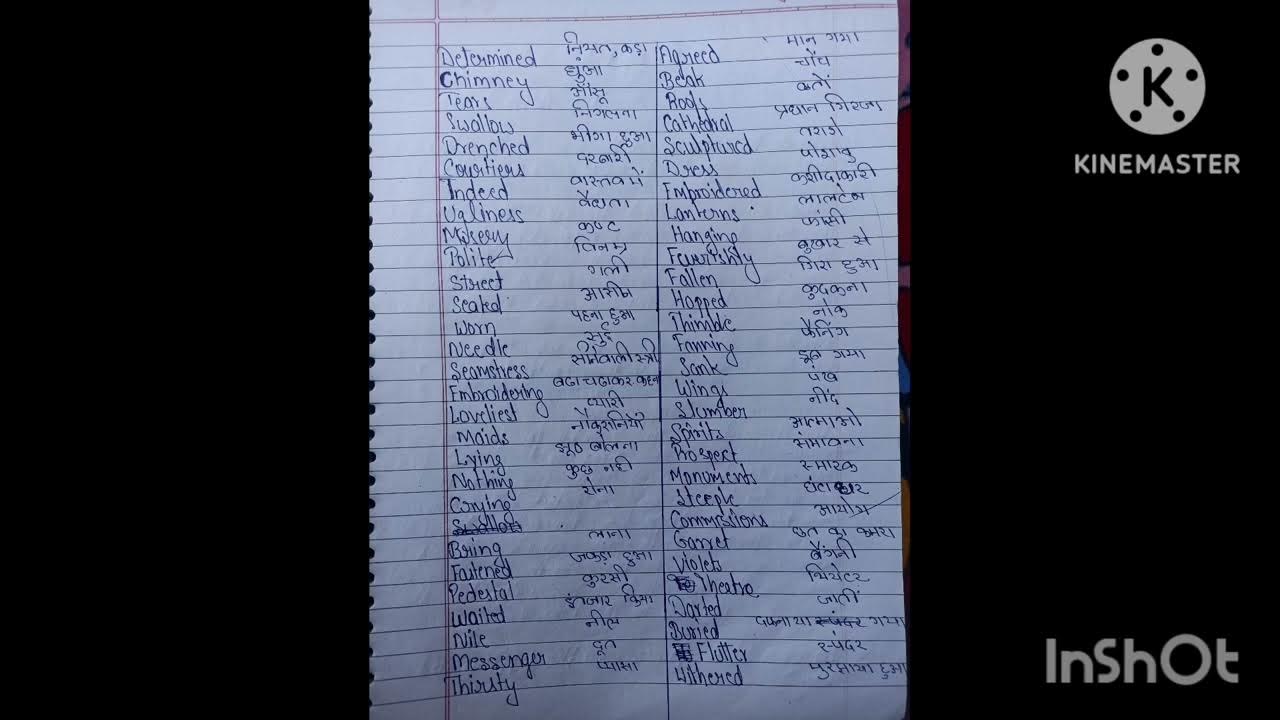 Determined नियत, कड़ा Agreed मान गया
Chimney धुंआ Beak चोंच
Tears आँसू Roofs
Swallow निगलना Cathedral प्रधान गिरजा
Drenched भीगा हुआ Sculptured तराशे
Courtiers दरबारी Dress
Indeed वास्तव में Embroidered कशीदाकारी
Ugliness Lanterns लालटेन
Misery कष्ट Hanging फांसी
Polite विनम्र Feverishly बुखार से
Street गली Fallen गिरा हुआ
Seated आसीन Hopped कुदकना
Worn पहना हुआ Thimble नोक
Needle सुई Fanning फैनिंग
Seamstress सीनेवाली स्त्री Sank डूब गया
Embroidering बढाचढाकर कहना Wings पंख
Loveliest प्यारी Slumber नींद
Maids नौकरानियों Spirits आत्माओ
Lying झूठ बोलना Prospect संभावना
Nothing कुछ नही Monuments स्मारक
Crying रोना Steeple
Commissions आयोग
Bring लाना Garret छत का कमरा
Fastened जकड़ा हुआ Violets बैंगनी
Pedestal कुरसी Theatre थियेटर
Waited इंतजार किया Darted
Nile नील Buried दफनाया गया
Messenger दूत Flutter स्पंदर
Thirsty प्यासा Withered मुरझाया हुआ
K
KINEMASTER
InShOt